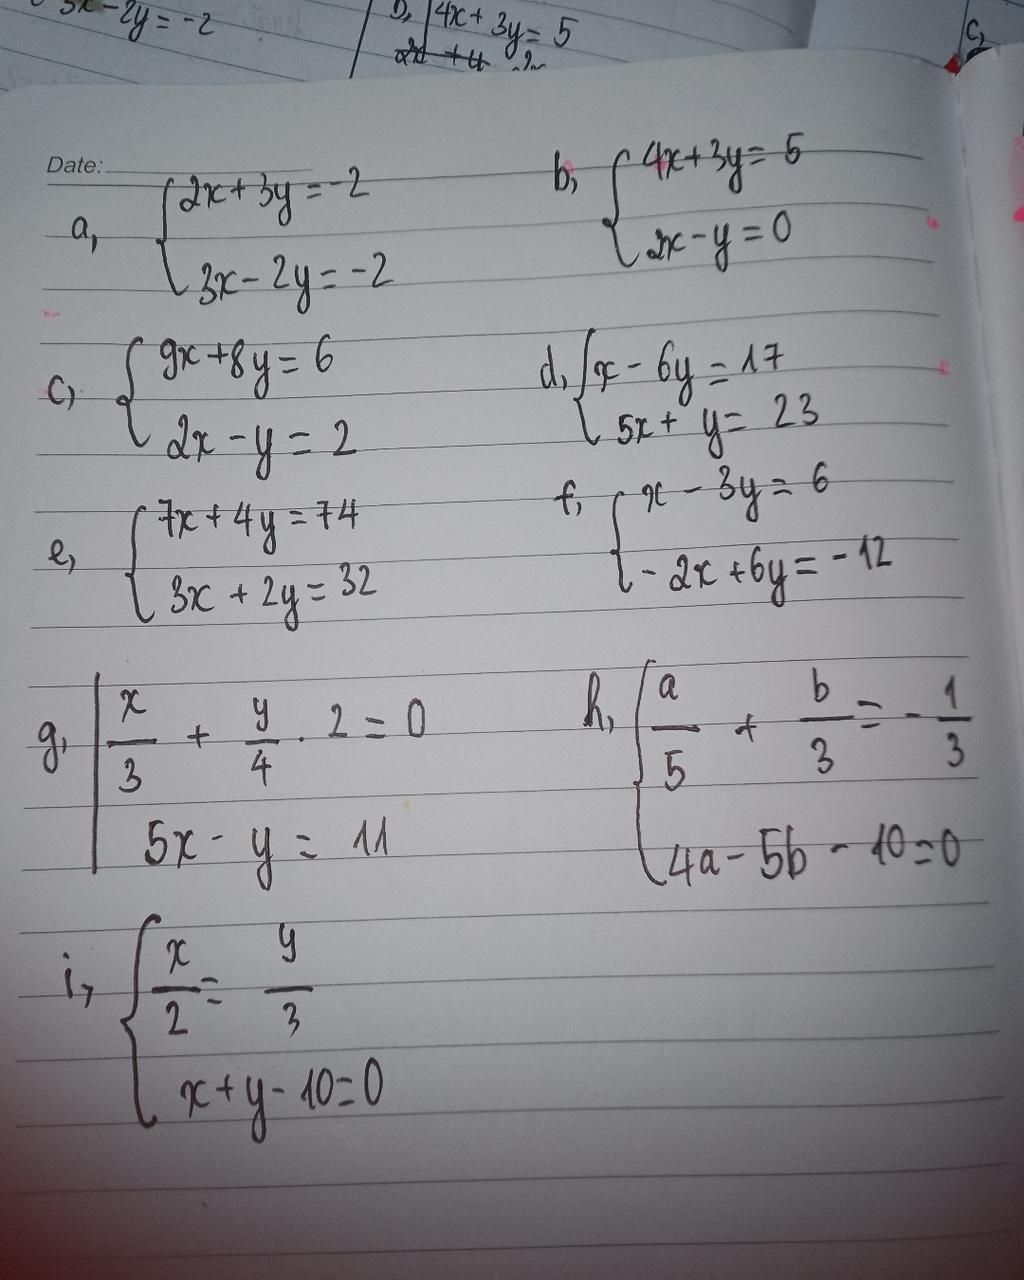 3x - 2y = -2
b, 4x + 3y = 5
c,
Date:
a, { 2x + 3y = -2
3x - 2y = -2
b, { 4x + 3y = 5
2x - y = 0
c, { 9x + 8y = 6
2x - y = 2
d, { x - 6y = 17
5x + y = 23
e, { 7x + 4y = 74
3x + 2y = 32
f, { x - 3y = 6
- 2x + 6y = - 12
g, | x/3 + y/4 . 2 = 0
5x - y = 11
h, { a/5 + b/3 = - 1/3
4a - 5b - 10 = 0
i, { x/2 = y/3
x + y - 10 = 0